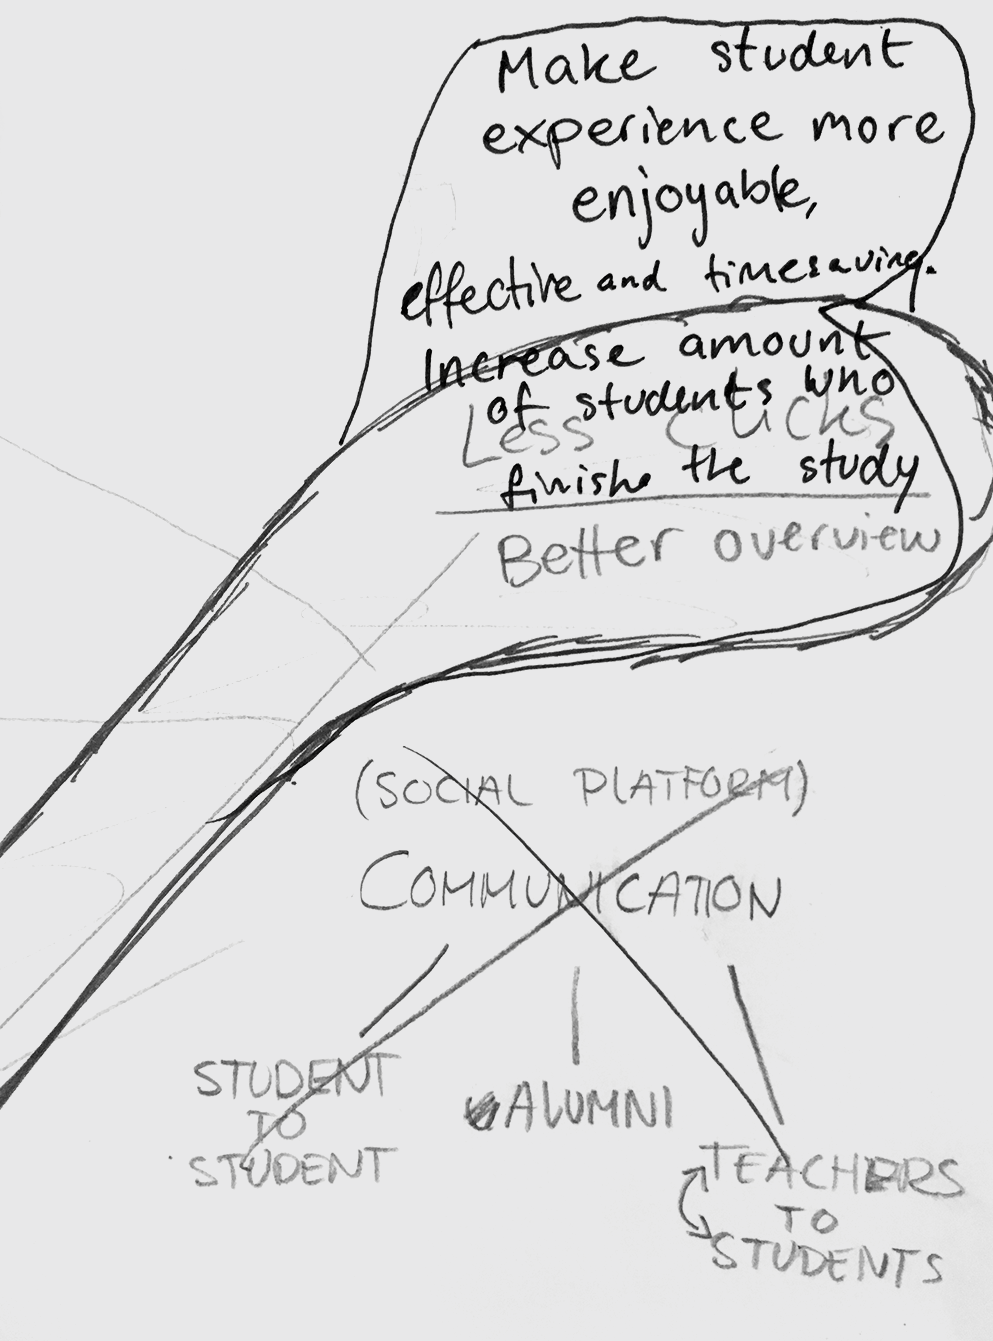 Make student
experience more
enjoyable,
effective and timesaving.
Increase amount
of students who
Less clicks
finish the study
Better overview
(SOCIAL PLATFORM)
COMMUNICATION
STUDENT
TO
STUDENT
ALUMNI
TEACHERS
TO
STUDENTS